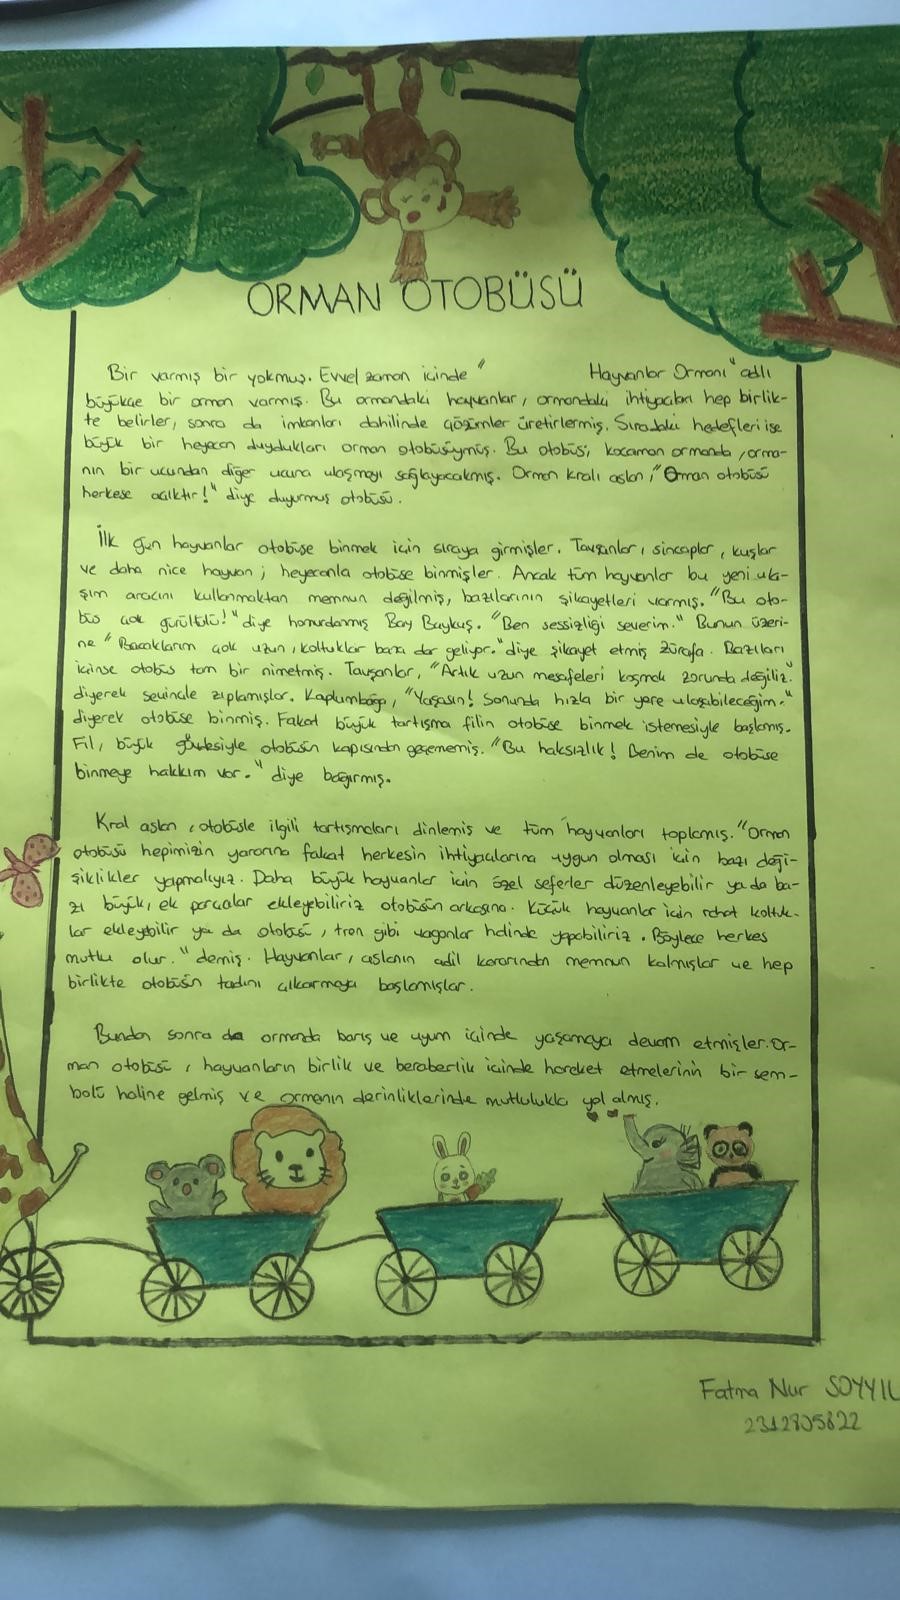 ORMAN OTOBÜSÜ
Bir varmış bir yokmuş. Evvel zaman içinde " Hayvanlar Ormanı" adlı
büyükçe bir orman varmış. Bu ormandaki hayvanlar, ormandaki ihtiyaçları hep birlik-
te belirler, sonra da imkanları dahilinde çözümler üretirlermiş. Sıradaki hedefleri ise
büyük bir heyecan duydukları orman otobüsüymüş. Bu otobüs, kocaman ormanda, orma-
nın bir ucundan diğer ucuna ulaşmayı sağlayacakmış. Orman kralı aslan, "Orman otobüsü
herkese açıktır!" diye duyurmuş otobüsü.
İlk gün hayvanlar otobüse binmek için sıraya girmişler. Tavşanlar, sincaplar, kuşlar
ve daha nice hayvan; heyecanla otobüse binmişler. Ancak tüm hayvanlar bu yeni ula-
şım aracını kullanmaktan memnun değilmiş, bazılarının şikayetleri varmış. "Bu oto-
büs çok gürültülü!" diye homurdanmış Bay Baykuş. "Ben sessizliği severim." Bunun üzeri-
ne "Bacaklarım çok uzun, koltuklar bana dar geliyor." diye şikayet etmiş zürafa. Bazıları
içinse otobüs tam bir nimetmiş. Tavşanlar, "Artık uzun mesafeleri koşmak zorunda değiliz."
diyerek sevinçle zıplamışlar. Kaplumbağa, "Yaşasın! Sonunda hızla bir yere ulaşabileceğim."
diyerek otobüse binmiş. Fakat büyük tartışma filin otobüse binmek istemesiyle başlamış.
Fil, büyük gövdesiyle otobüsün kapısından geçememiş. "Bu haksızlık! Benim de otobüse
binmeye hakkım var." diye bağırmış.
Kral aslan, otobüsle ilgili tartışmaları dinlemiş ve tüm hayvanları toplamış. "Orman
otobüsü hepimizin yararına fakat herkesin ihtiyaçlarına uygun olması için bazı deği-
şiklikler yapmalıyız. Daha büyük hayvanlar için özel seferler düzenleyebilir ya da ba-
zı büyük, ek parçalar ekleyebiliriz otobüsün arkasına. Küçük hayvanlar için rahat koltuk-
lar ekleyebilir ya da otobüsü, tren gibi vagonlar halinde yapabiliriz. Böylece herkes
mutlu olur." demiş. Hayvanlar, aslanın adil kararından memnun kalmışlar ve hep
birlikte otobüsün tadını çıkarmaya başlamışlar.
Bundan sonra da ormanda barış ve uyum içinde yaşamaya devam etmişler. Or-
man otobüsü, hayvanların birlik ve beraberlik içinde hareket etmelerinin bir sem-
bolü haline gelmiş ve ormanın derinliklerinde mutlulukla yol almış.
Fatma Nur SOYYIL
2312805822